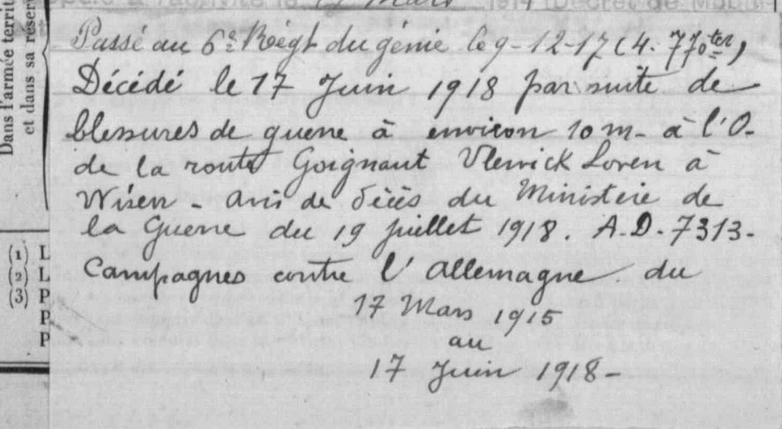 Dans l'armée territ
et dans sa réserv
Passé au 6e Régt du génie le 9-12-17 (4. 770ter)
Décédé le 17 Juin 1918 par suite de
blessures de guerre à environ 10 m- à l'O-
de la route Goignaut Vlewick Loven à
Wisen - avis de décès du Ministère de
la Guerre du 19 juillet 1918. A.D-7313-
Campagnes contre l'Allemagne du
17 Mars 1915
au
17 Juin 1918-
(1) L
(2) L
(3) P
P
P